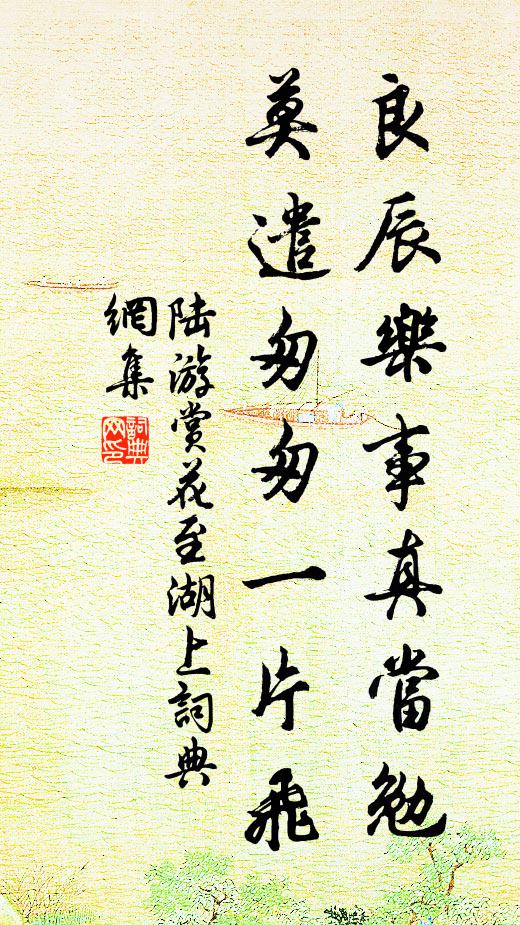 良辰樂事真當勉
莫遣匆匆一片飛
陆游赏花至湖上詞典
網集
詞典网印